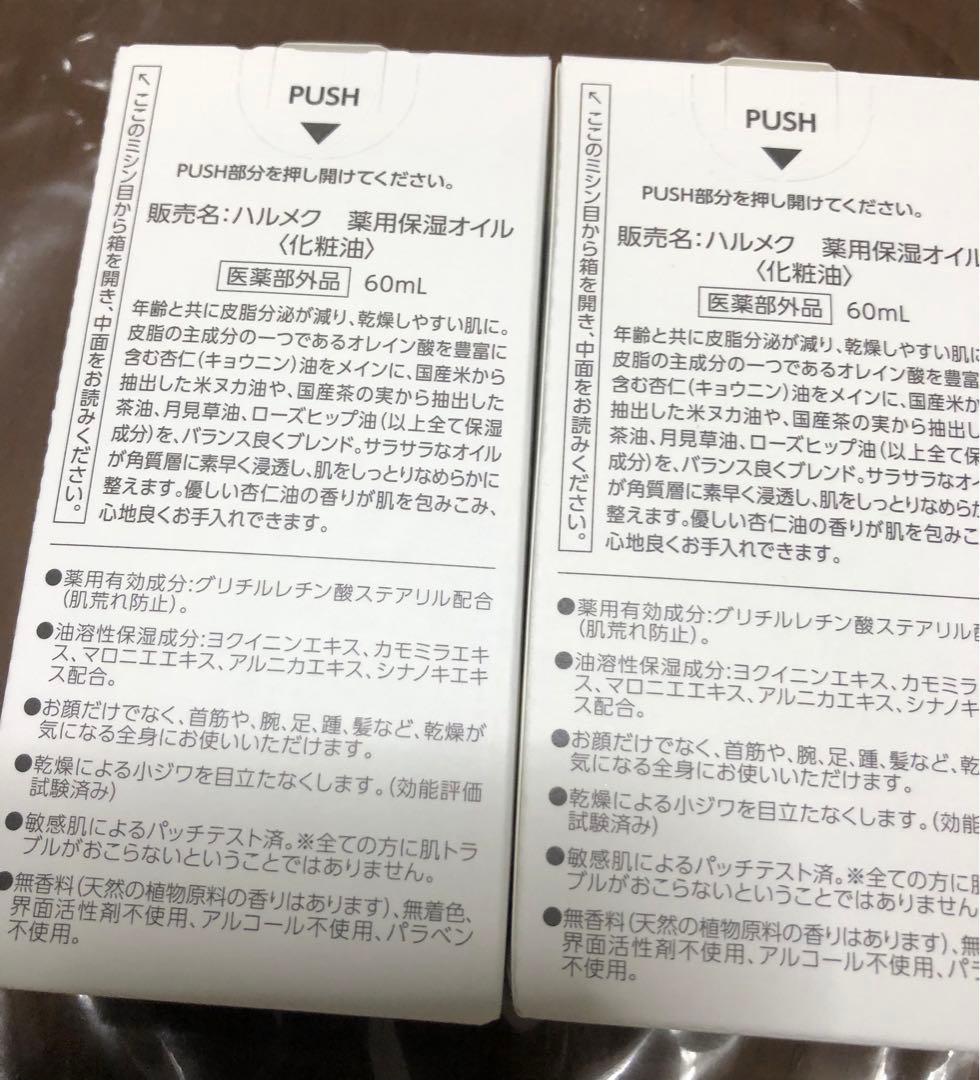 PUSH
PUSH部分を押し開けてください。
↖ここのミシン目から箱を開き、中面をお読みください。
販売名：ハルメク 薬用保湿オイル
〈化粧油〉
医薬部外品 60mL
年齢と共に皮脂分泌が減り、乾燥しやすい肌に。
皮脂の主成分の一つであるオレイン酸を豊富に
含む杏仁(キョウニン)油をメインに、国産米から
抽出した米ヌカ油や、国産茶の実から抽出した
茶油、月見草油、ローズヒップ油(以上全て保湿
成分)を、バランス良くブレンド。サラサラなオイル
が角質層に素早く浸透し、肌をしっとりなめらかに
整えます。優しい杏仁油の香りが肌を包みこみ、
心地良くお手入れできます。
●薬用有効成分：グリチルレチン酸ステアリル配合
(肌荒れ防止)。
●油溶性保湿成分：ヨクイニンエキス、カモミラエキ
ス、マロニエエキス、アルニカエキス、シナノキエキ
ス配合。
●お顔だけでなく、首筋や、腕、足、踵、髪など、乾燥が
気になる全身にお使いいただけます。
●乾燥による小ジワを目立たなくします。(効能評価
試験済み)
●敏感肌によるパッチテスト済。※全ての方に肌トラ
ブルがおこらないということではありません。
●無香料(天然の植物原料の香りはあります)、無着色、
界面活性剤不使用、アルコール不使用、パラベン
不使用。
PUSH
PUSH部分を押し開けてください。
↖ここのミシン目から箱を開き、中面をお読みください。
販売名：ハルメク 薬用保湿オイル
〈化粧油〉
医薬部外品 60mL
年齢と共に皮脂分泌が減り、乾燥しやすい肌に
皮脂の主成分の一つであるオレイン酸を豊富
含む杏仁(キョウニン)油をメインに、国産米か
抽出した米ヌカ油や、国産茶の実から抽出し
茶油、月見草油、ローズヒップ油(以上全て保
成分)を、バランス良くブレンド。サラサラなオイ
が角質層に素早く浸透し、肌をしっとりなめらか
整えます。優しい杏仁油の香りが肌を包みこ
心地良くお手入れできます。
●薬用有効成分：グリチルレチン酸ステアリル
(肌荒れ防止)。
●油溶性保湿成分：ヨクイニンエキス、カモミラ
ス、マロニエエキス、アルニカエキス、シナノキ
ス配合。
●お顔だけでなく、首筋や、腕、足、踵、髪など、乾
気になる全身にお使いいただけます。
●乾燥による小ジワを目立たなくします。(効能
試験済み)
●敏感肌によるパッチテスト済。※全ての方に肌
ブルがおこらないということではありません
●無香料(天然の植物原料の香りはあります)、無
界面活性剤不使用、アルコール不使用、パラ
不使用。